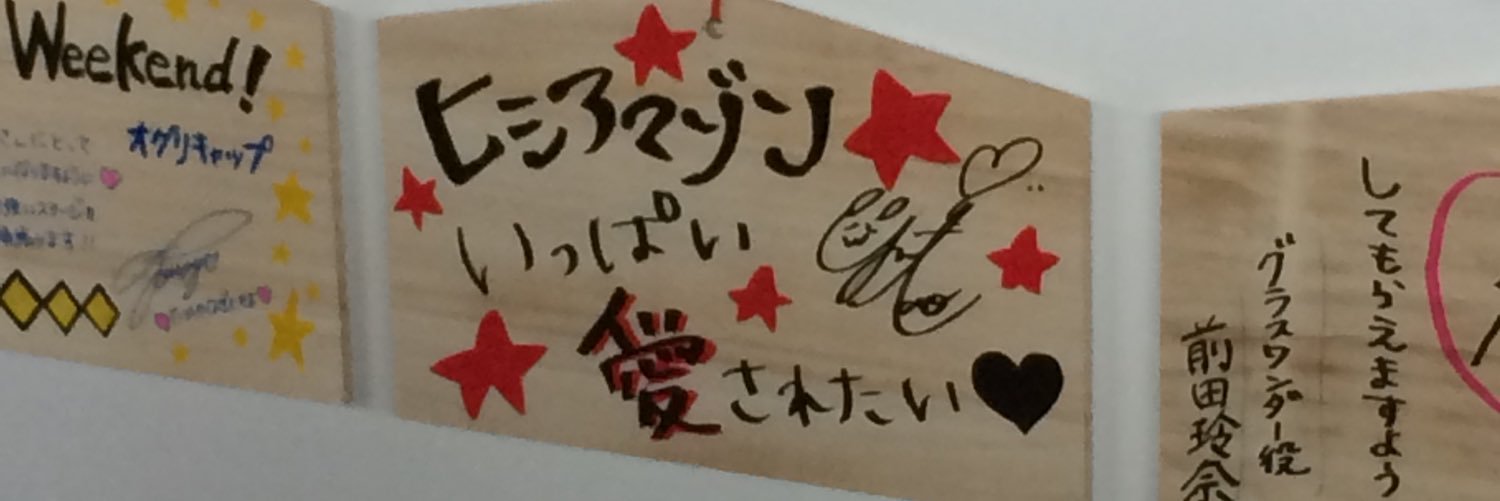 Weekend!
オグリキャップ
ヒシアマゾン
いっぱい
愛されたい
してもらえますよう
グラスワンダー役
前田玲奈